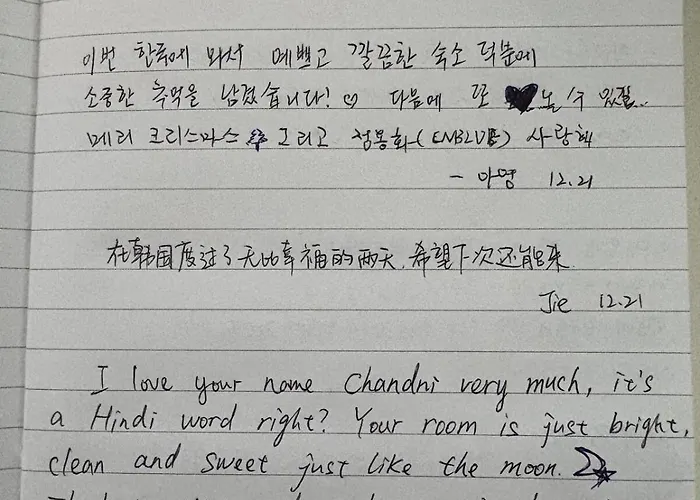 이번 한국에 와서 예쁘고 깔끔한 숙소 덕분에
소중한 추억을 남겼습니다! ♡ 다음에 또 올 수 있길..
메리 크리스마스 그리고 정용화(CNBLUE) 사랑해
- 아영 12.21
在韩国度过了无比幸福的两天,希望下次还能来
Jie 12.21
I love your name Chandni very much, it's
a Hindi word right? Your room is just bright,
clean and sweet just like the moon.